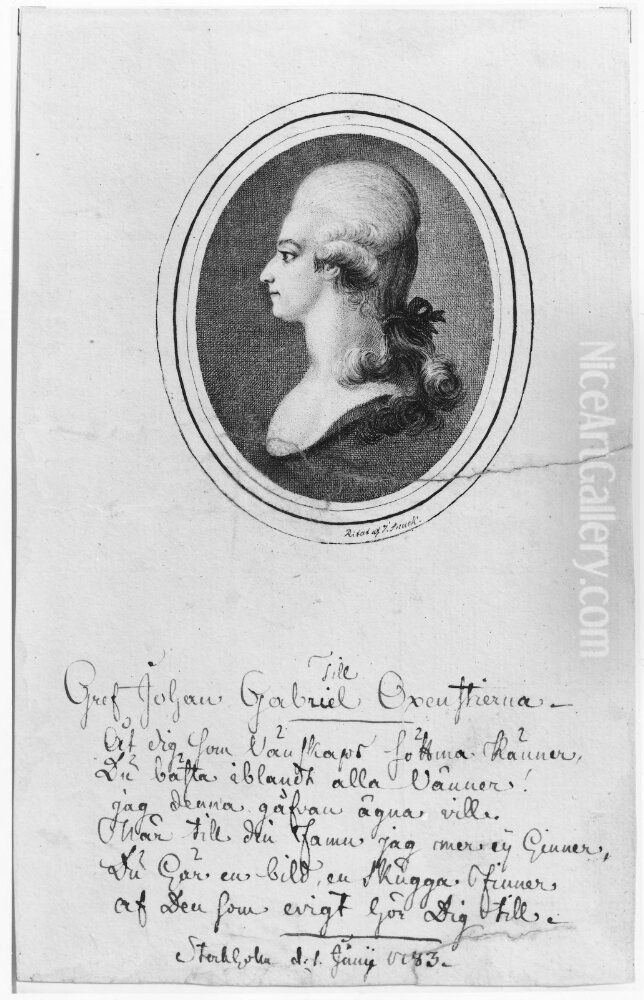 Ritat af J. Snack.
Till
Gref Johan Gabriel Oxenstierna
Åt dig som Vänskaps sötma känner,
Du bästa iblandt alla Vänner!
jag denna gåfvan ägna vill.
När till din Famn jag mer ej hinner,
Du här en bild, en skugga finner
af Den som evigt hör Dig till.
Stockholm d. 1. Junij 1783.
NiceArtGallery.com